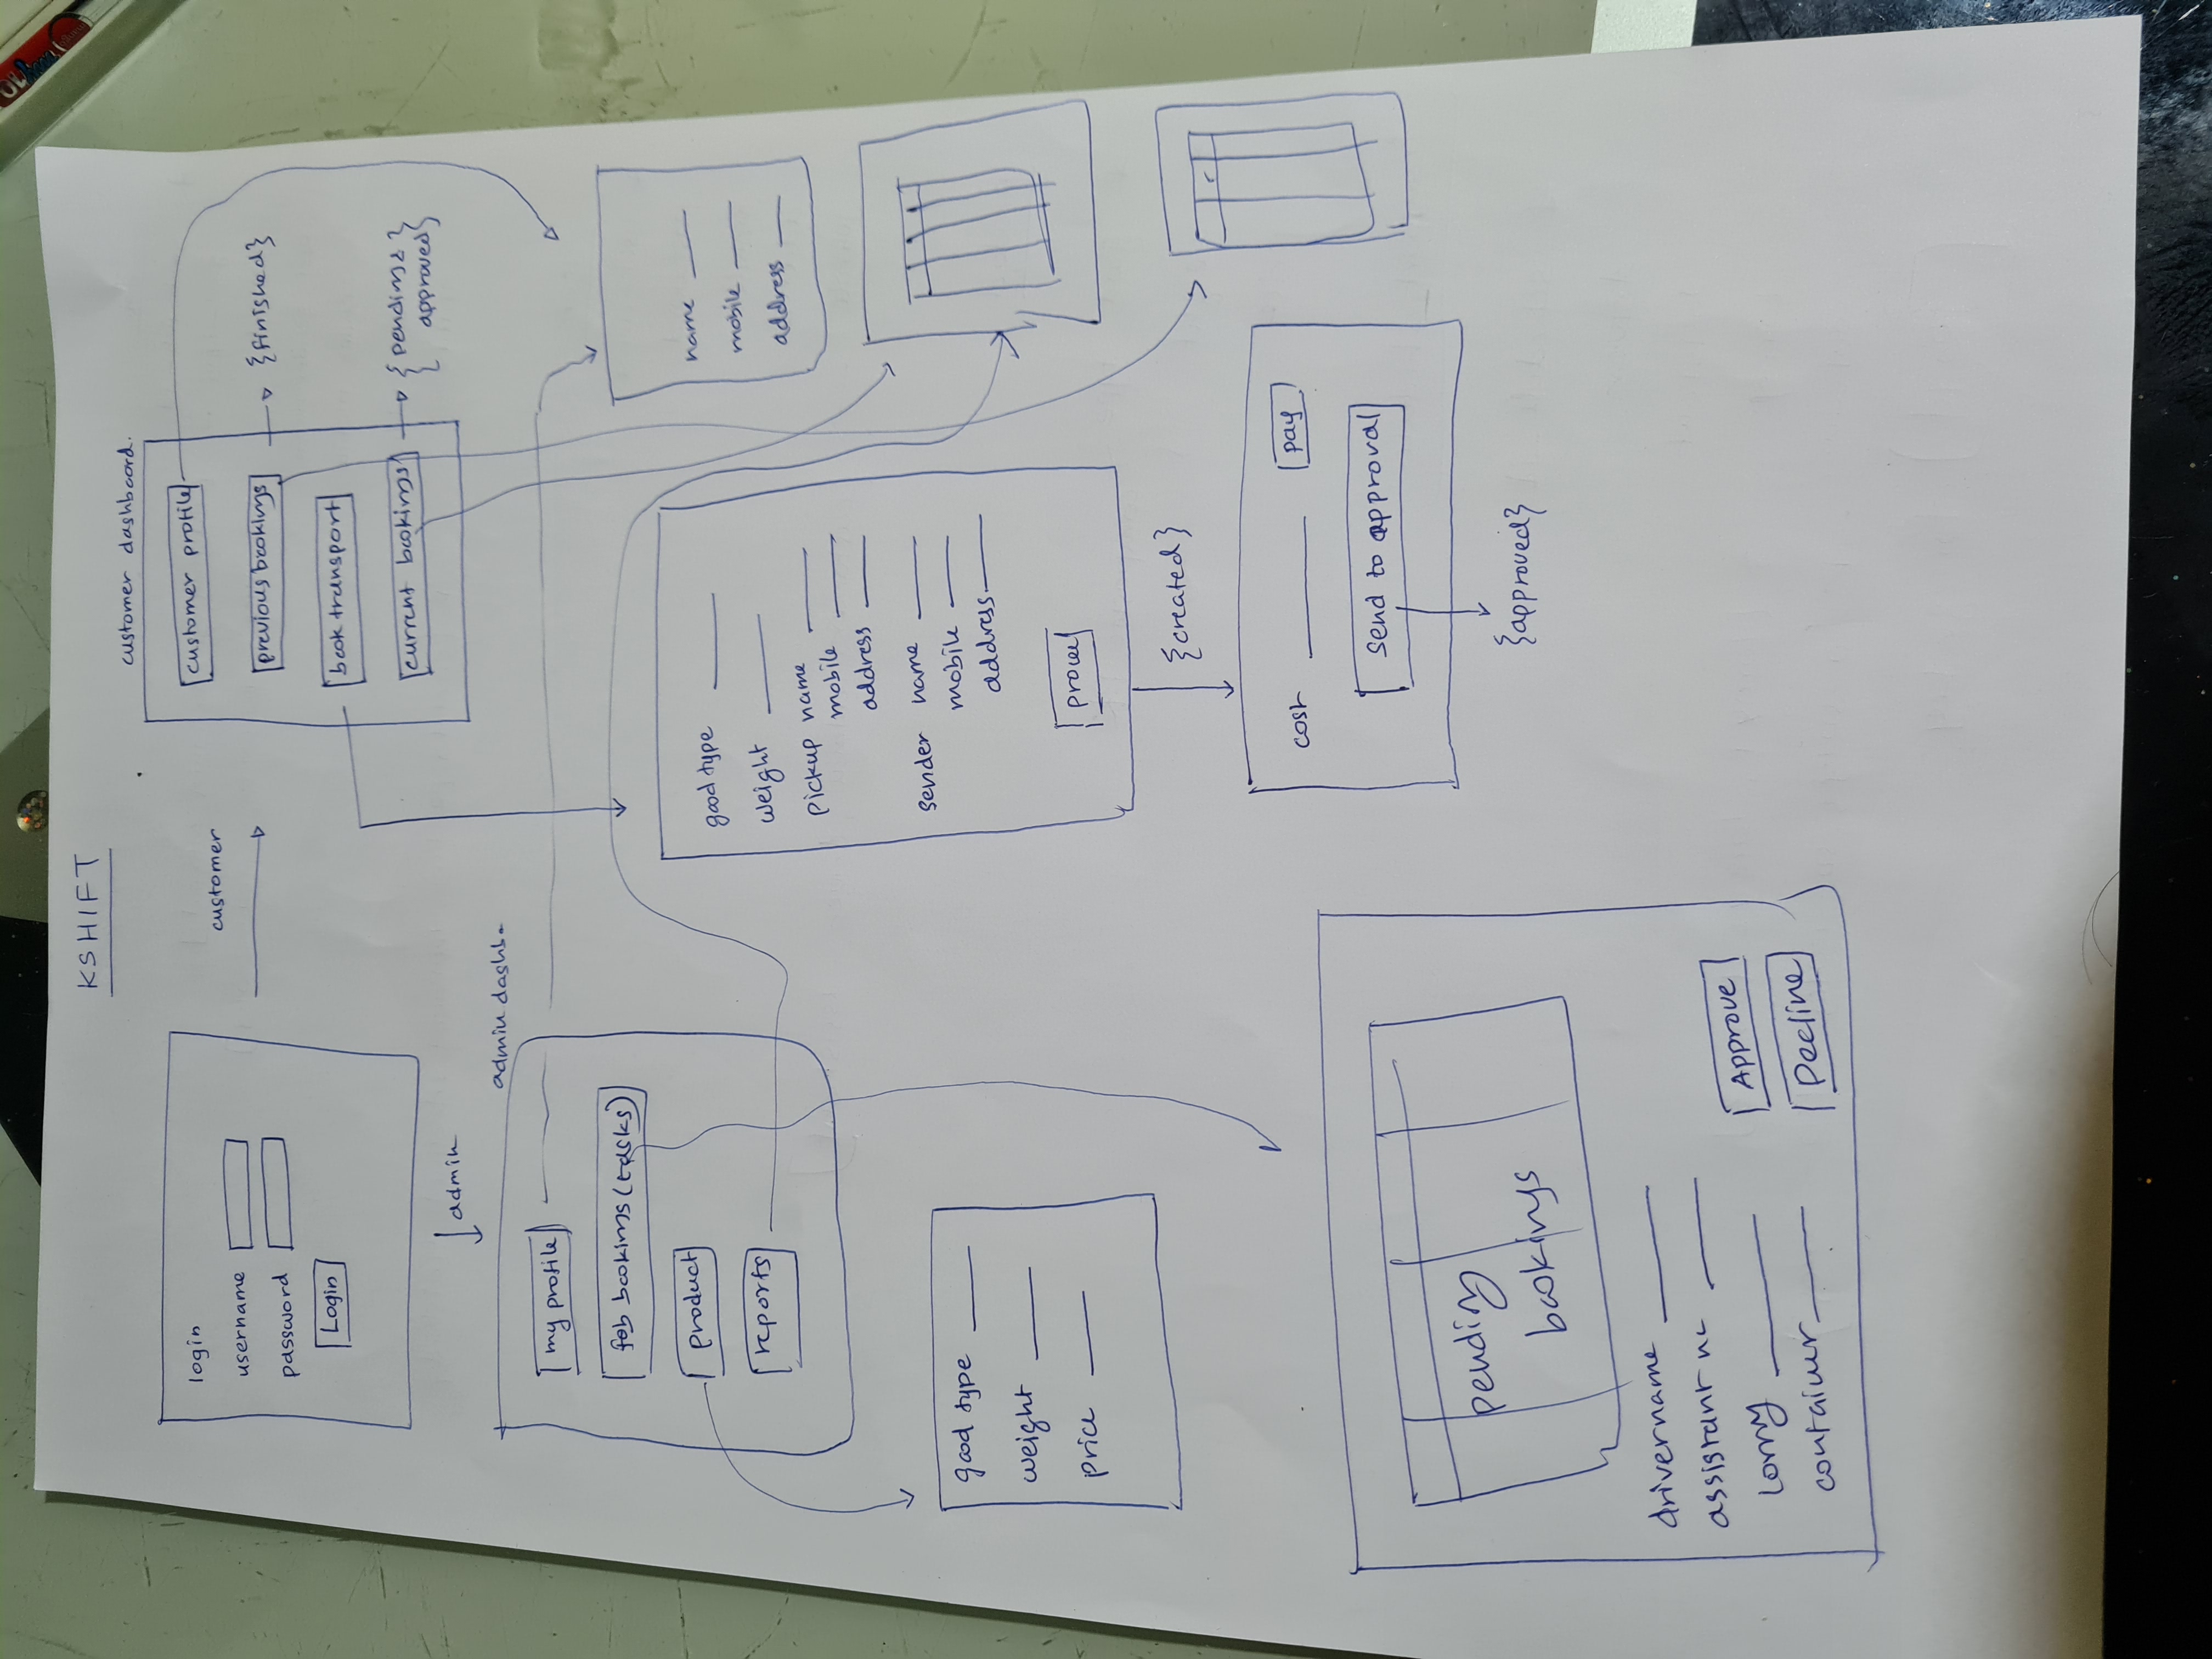 KSHIFT
login
username
password
Login
customer
customer dashboard.
customer profile
previous bookings
{finished}
book transport
current bookings
{pending &
approved}
admin
admin dashb.
my profile
job bookings (tasks)
product
reports
name
mobile
address
good type
weight
pickup name
mobile
address
sender name
mobile
address
{created}
good type
weight
price
cost
pay
send to approval
{approved}
pending
bookings
drivername
assistant
lorry
container
Approve
Decline